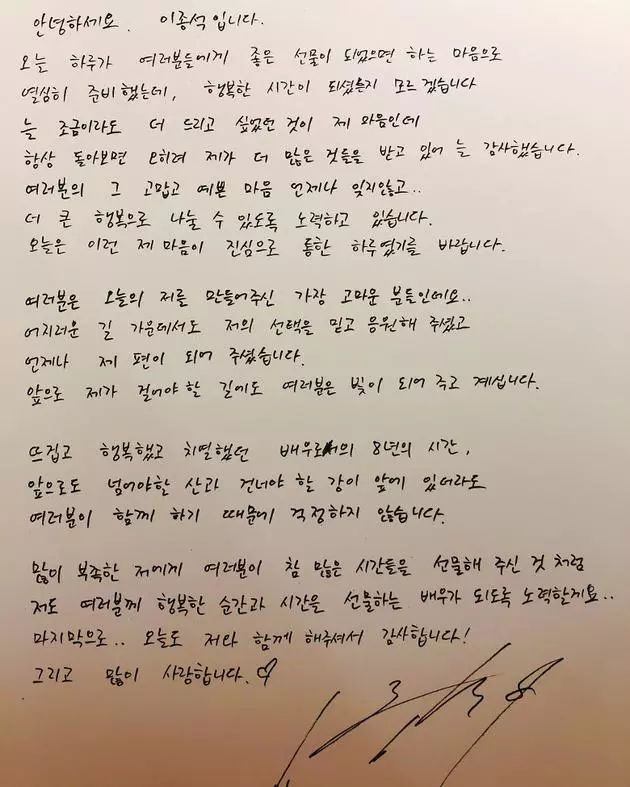 안녕하세요. 이종석입니다.
오늘 하루가 여러분들에게 좋은 선물이 되었으면 하는 마음으로
열심히 준비했는데, 행복한 시간이 되셨을지 모르겠습니다
늘 조금이라도 더 드리고 싶었던 것이 제 마음인데
항상 돌아보면 오히려 제가 더 많은 것들을 받고 있어 늘 감사했습니다.
여러분의 그 고맙고 예쁜 마음 언제나 잊지않고..
더 큰 행복으로 나눌 수 있도록 노력하고 있습니다.
오늘은 이런 제 마음이 진심으로 통한 하루였기를 바랍니다.
여러분은 오늘의 저를 만들어주신 가장 고마운 분들인데요..
어지러운 길 가운데서도 저의 선택을 믿고 응원해 주셨고
언제나 제 편이 되어 주셨습니다.
앞으로 제가 걸어야 할 길에도 여러분은 빛이 되어 주고 계십니다.
뜨겁고 행복했고 치열했던 배우로서의 8년의 시간,
앞으로도 넘어야할 산과 건너야 할 강이 앞에 있더라도
여러분이 함께 하기 때문에 걱정하지 않습니다.
많이 부족한 저에게 여러분이 참 많은 시간들을 선물해 주신 것 처럼
저도 여러분께 행복한 순간과 시간을 선물하는 배우가 되도록 노력할게요..
마지막으로.. 오늘도 저와 함께 해주셔서 감사합니다!
그리고 많이 사랑합니다.♡